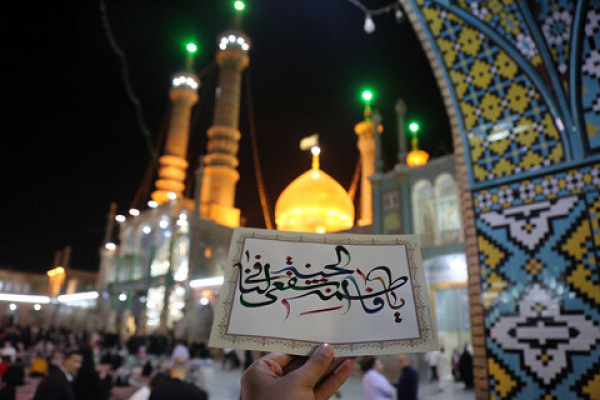 یا فاطمة اشفعی لنا فی الجنة